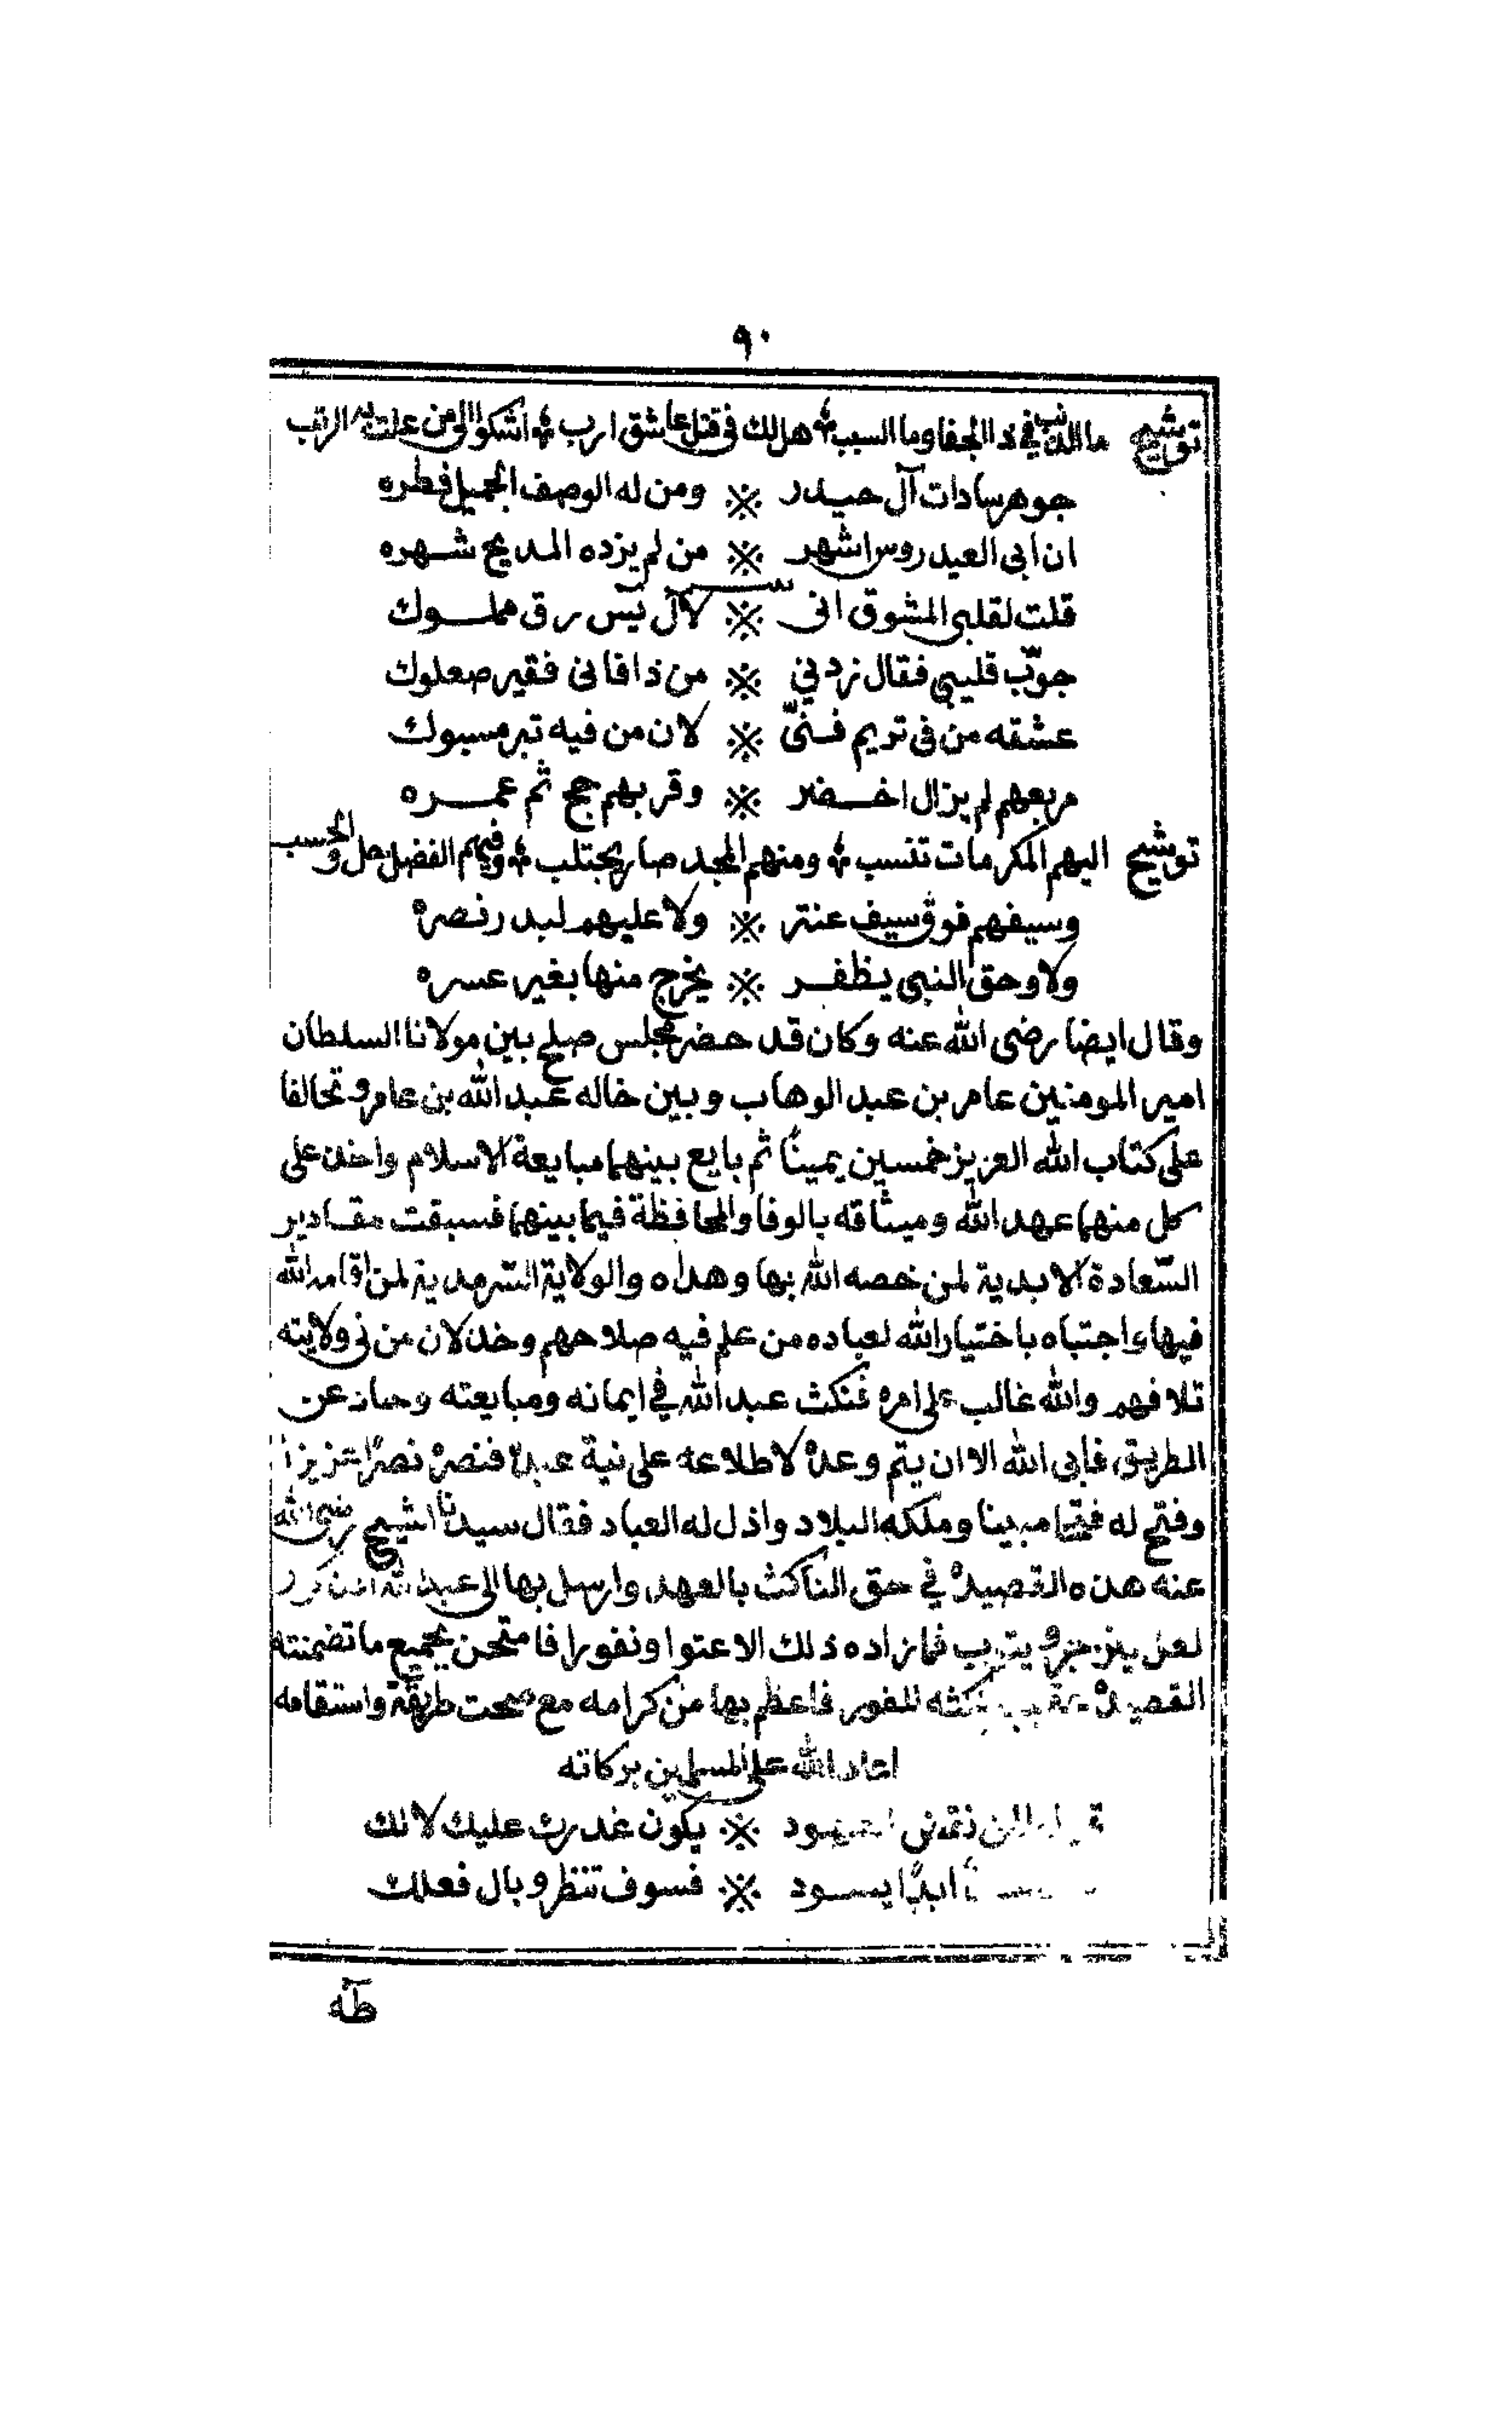 ٩٠
توشيح ما الذنب في ذا الجفا وما السبب هل لك في قتل عاشق ارب اشكوا الى من علت له الرتب
جوهر سادات آل حيدر ※ ومن له الوصف الجميل فطره
ان ابي العيدروس اشهر ※ من لم يزده المديح شهره
قلت لقلبي المشوق انى ※ لآل يس رق مملوك
جوّب قليبي فقال زدني ※ من ذا فانى فقير صعلوك
عشقه من فى تريم فنىّ ※ لان من فيه تبر مسبوك
مربعهم لم يزال اخضر ※ وقربهم حج ثم عمره
توشيح اليهم المكرمات تنتسب ومنهم المجد صار يجتلب وفيهم الفضل حل والحسب
وسيفهم فوق سيف عنتر ※ ولا عليهم لبدر نصره
ولا وحق النبي يظفر ※ يخرج منها بغير عسره
وقال ايضا رضى الله عنه وكان قد حضر مجلس صلح بين مولانا السلطان
امير المومنين عامر بن عبد الوهاب وبين خاله عبد الله بن عامر وتحالفا
على كتاب الله العزيز خمسين يمينًا ثم بايع بينهما مبايعة الاسلام واخذ على
كل منهما عهد الله وميثاقه بالوفا والمحافظة فيما بينهما فسبقت مقادير
السّعادة الابدية لمن خصه الله بها وهداه والولاية السّرمدية لمن اقامه الله
فيها واجتباه باختيار الله لعباده من علم فيه صلاحهم وخذلان من نى ولايته
تلافهم والله غالب على امره فنكث عبد الله في ايمانه ومبايعته وحاد عن
الطريق فابى الله الا ان يتم وعده لاطلاعه على نية عبده فنصره نصرًا عزيزا
وفتح له فتحا مبينا وملكه البلاد واذل له العباد فقال سيدنا الشيخ رضى الله
عنه هذه القصيدة في حق الناكث بالعهد وارسل بها الى عبد الله المذكور
لعل ينزجر و يتوب فما زاده ذلك الا عتوا ونفورا فامتحن بجميع ما تضمنته
القصيدة نكثه للفور فاعظم بها من كرامه مع صحت طريقة واستقامه
اعاد الله على المسلمين بركاته
لمن نقض العهود ※ يكون غدرك عليك لا لك
ابدًا يسود ※ فسوف تنظر وبال فعلك
طه